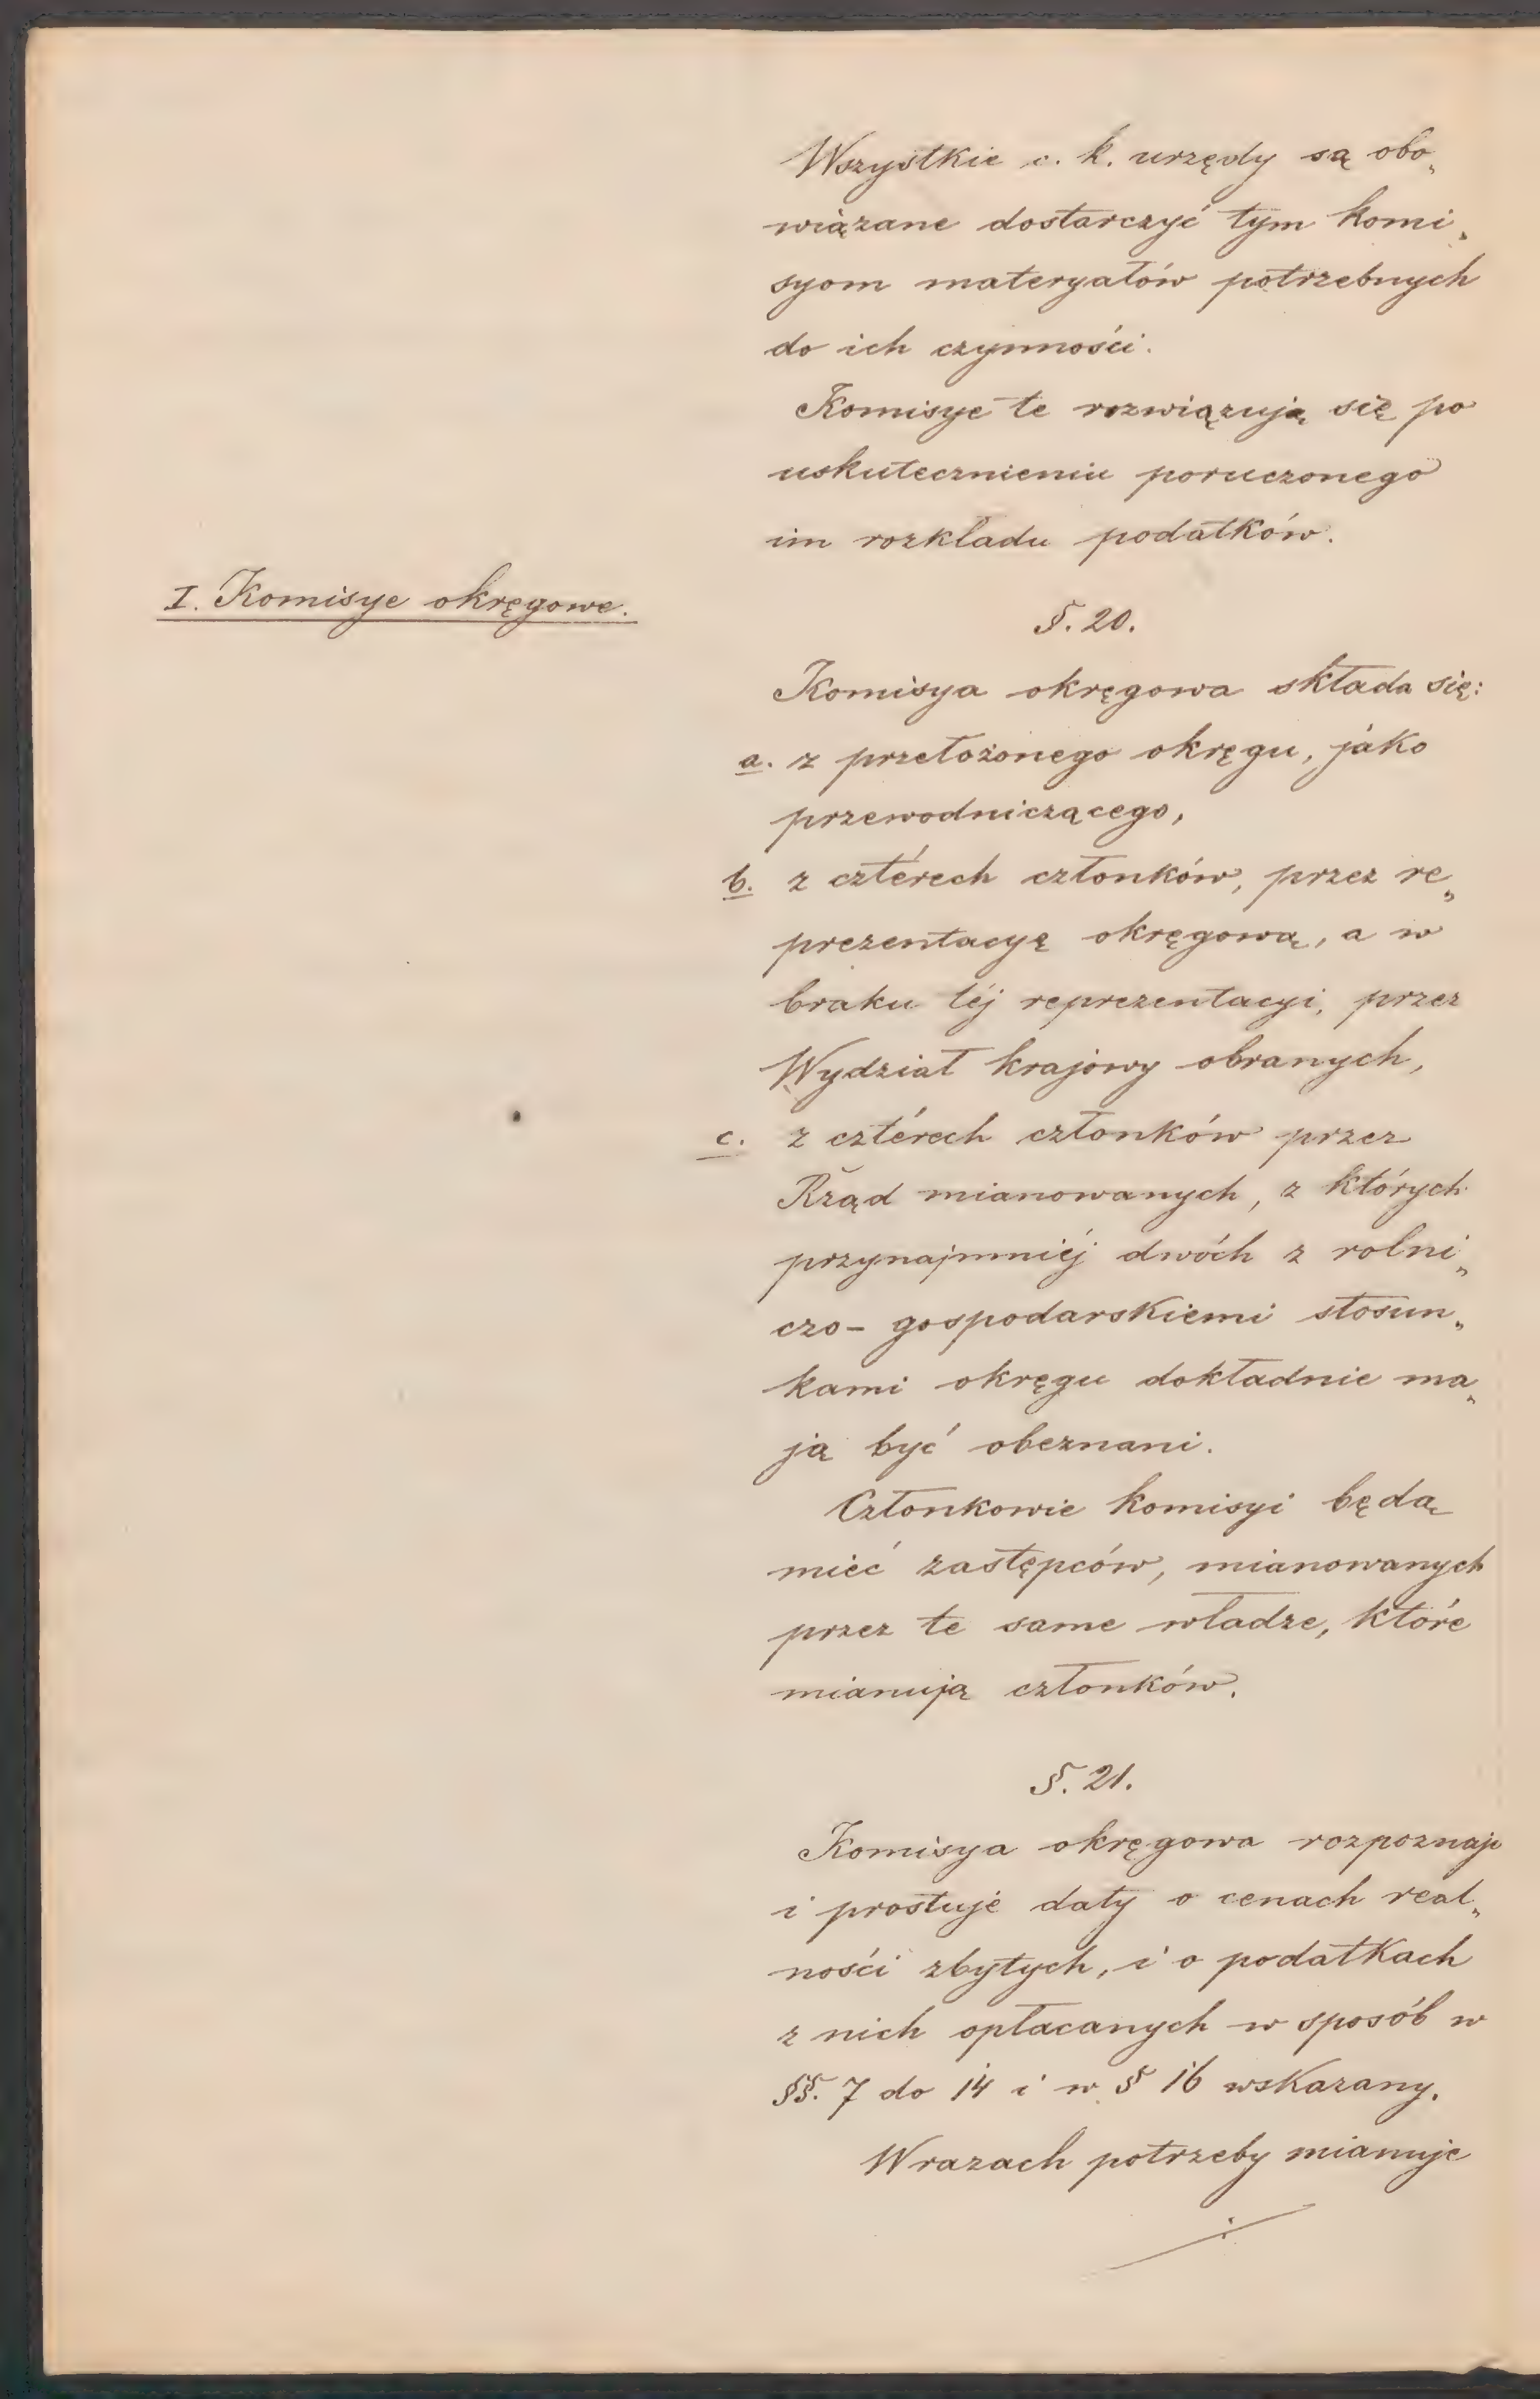 Wszystkie c. k. urzędy są obo„
wiązane dostarczyć tym komi„
syom materyałów potrzebnych
do ich czynności.
Komisye te rozwiązują się po
uskutecznieniu poruczonego
im rozkładu podatków.
I. Komisye okręgowe.
§. 20.
Komisya okręgowa składa się:
a. z przełożonego okręgu, jako
przewodniczącego,
b. z cztérech członków, przez re„
prezentacyę okręgową, a w
braku téj reprezentacyi, przez
Wydział krajowy obranych,
c. z cztérech członków przez
Rząd mianowanych, z których
przynajmniéj dwóch z rolni„
czo- gospodarskiemi stosun„
kami okręgu dokładnie ma„
ją być obeznani.
Członkowie komisyi będą
mieć zastępców, mianowanych
przez te same władze, które
mianują członków.
§. 21.
Komisya okręgowa rozpoznaje
i prostuje daty o cenach real„
ności zbytych, i o podatkach
z nich opłacanych w sposób w
§§. 7 do 14 i w § 16 wskazany.
W razach potrzeby mianuje